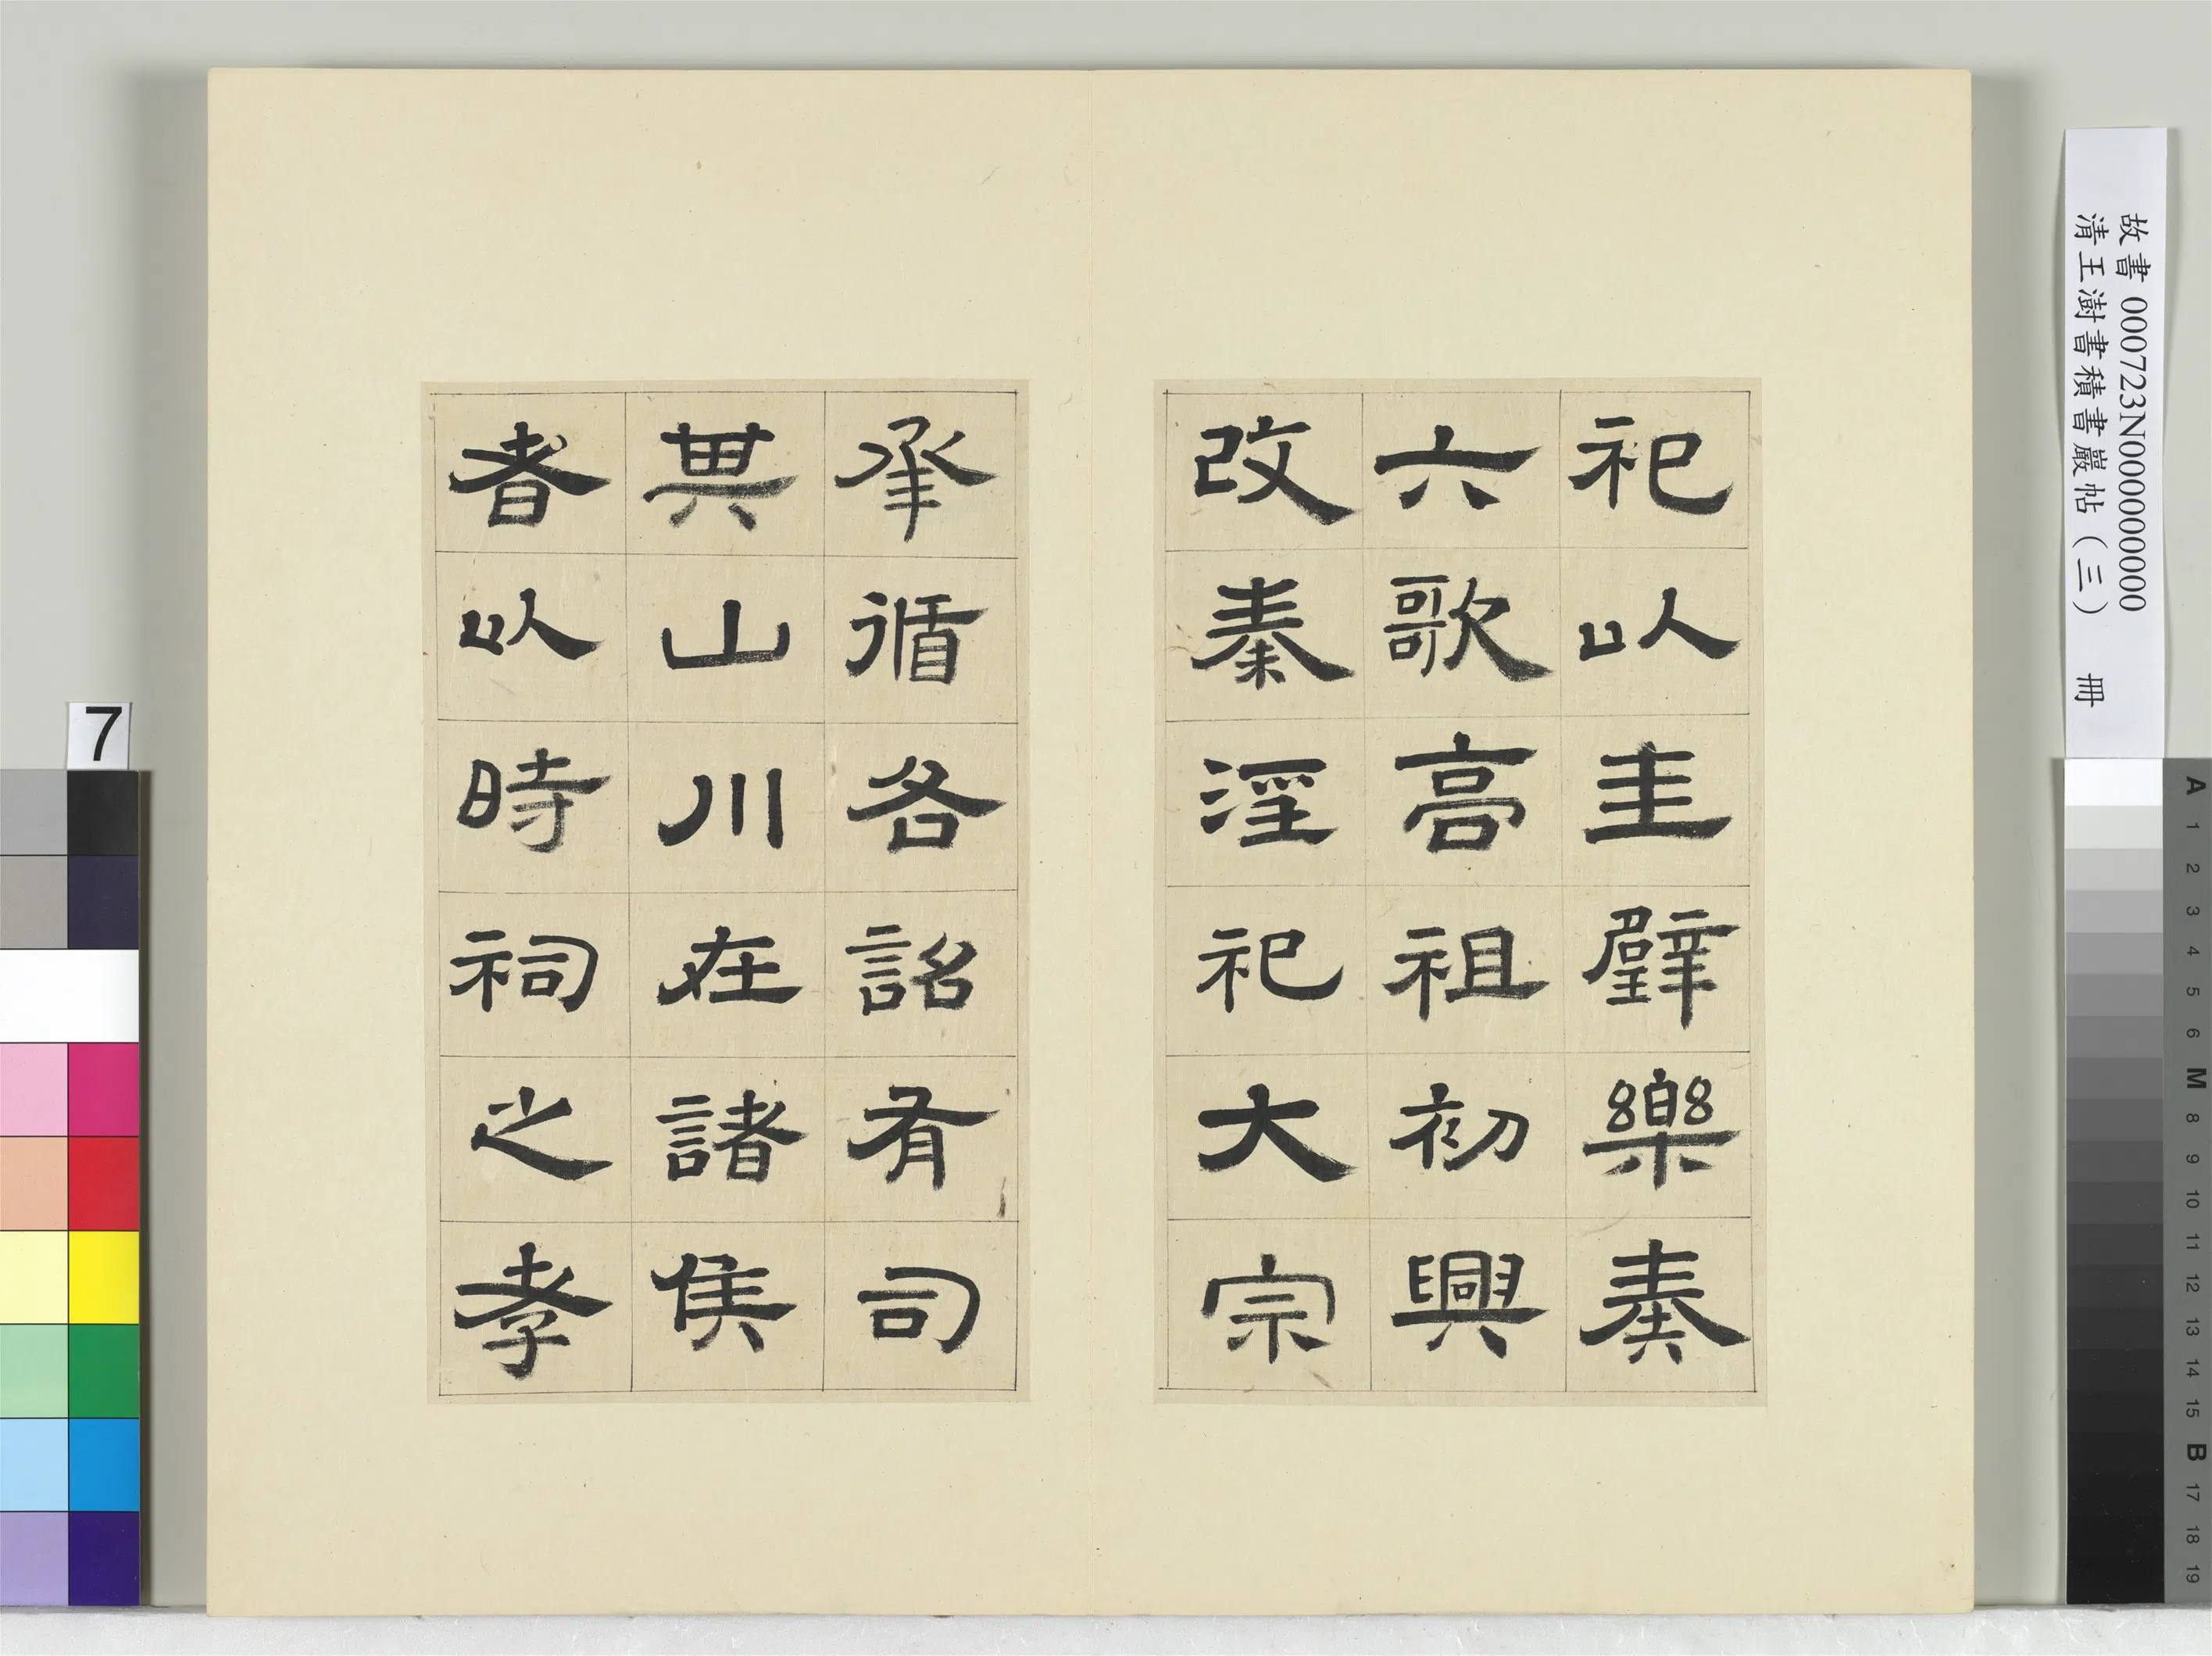 祀以圭璧樂奏
六歌高祖初興
改秦淫祀大宗
承循各詔有司
其山川在諸侯
者以時祠之孝
故書000723N000000000
清王澍書積書巖帖（三） 冊
7
A
1
2
3
4
5
6
M
8
9
10
11
12
13
14
15
B
17
18
19